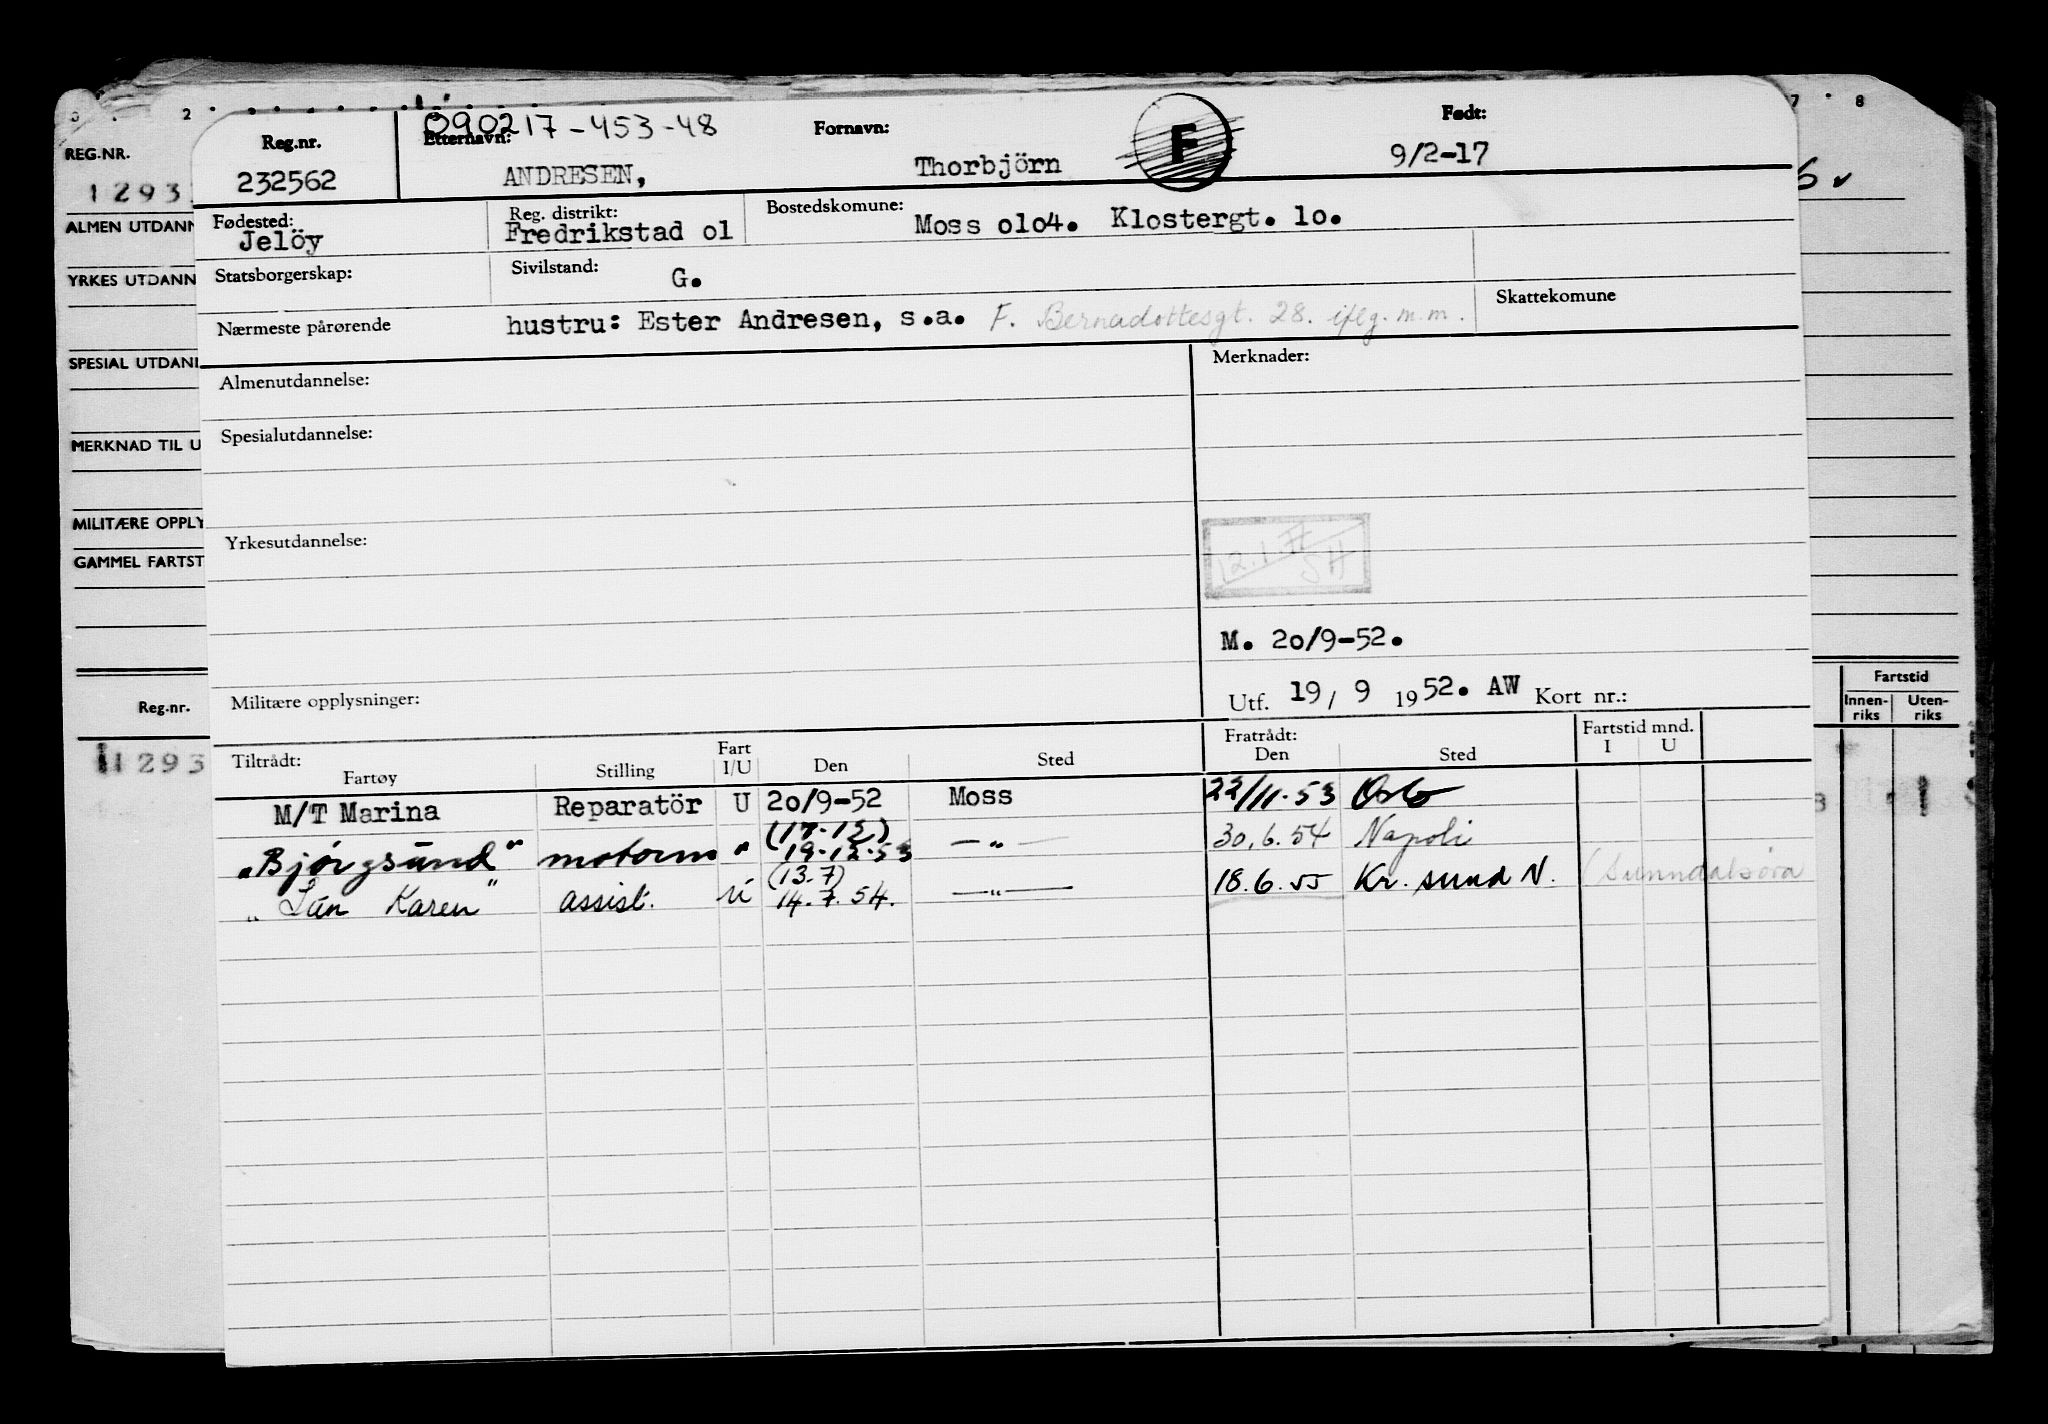 3 2 7 8
REG.NR. Reg.nr. 090217-453-48 Etternavn: Fornavn: F Født:
1293 232562 ANDRESEN, Thorbjörn 9/2-17
ALMEN UTDANN Fødested: Jelöy Reg. distrikt: Fredrikstad o1 Bostedskomune: Moss o1o4. Klostergt. 1o.
YRKES UTDANN Statsborgerskap: Sivilstand: G.
Nærmeste pårørende hustru: Ester Andresen, s.a. F. Bernadottesgt. 28. iflg. m.m. Skattekomune
SPESIAL UTDAN Almenutdannelse: Merknader:
MERKNAD TIL U Spesialutdannelse:
MILITÆRE OPPLY
GAMMEL FARTST Yrkesutdannelse: 12.1. SH
M. 2o/9-52.
Reg.nr. Militære opplysninger: Utf. 19/ 9 1952. AW Kort nr.: Fartstid
Innen-riks Uten-riks
1293 Tiltrådt: Fratrådt: Fartstid mnd.
Fartøy Stilling Fart I/U Den Sted Den Sted I U
M/T Marina Reparatör U 2o/9-52 Moss 22/11-53 Oslo
"Bjørgsund" motorm " (17-12) 19-12-53 -"- 30.6.54 Napoli
"San Karen" assist. U (13.7) 14.7.54. -"- 18.6.55 Kr. sund N. (Sunndalsøra